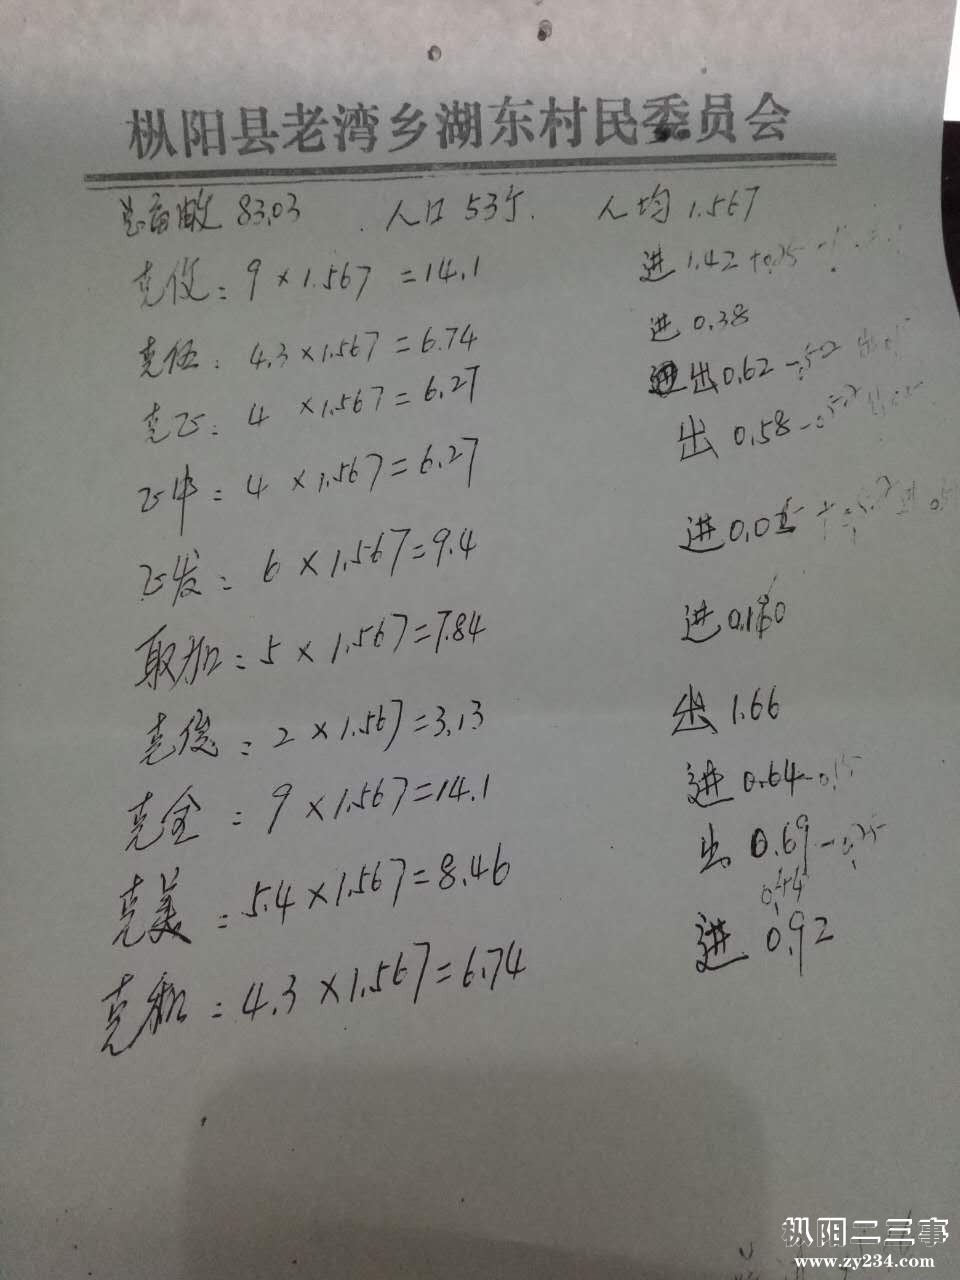 枞阳县老湾乡湖东村民委员会
总亩数 83.03 人口 53个 人均 1.567
克仪: 9 × 1.567 = 14.1 进 1.42 +0.25
克伍: 4.3 × 1.567 = 6.74 进 0.38
克正: 4 × 1.567 = 6.27 出 0.62
正中: 4 × 1.567 = 6.27 出 0.58
正发: 6 × 1.567 = 9.4 进
取加: 5 × 1.567 = 7.84 进
克俊: 2 × 1.567 = 3.13 出 1.66
克全: 9 × 1.567 = 14.1 进 0.64 - 0.15
克美: 5.4 × 1.567 = 8.46 出 0.69 - 0.25
0.44
克和: 4.3 × 1.567 = 6.74 进 0.92
枞阳二三事
www.zy234.com